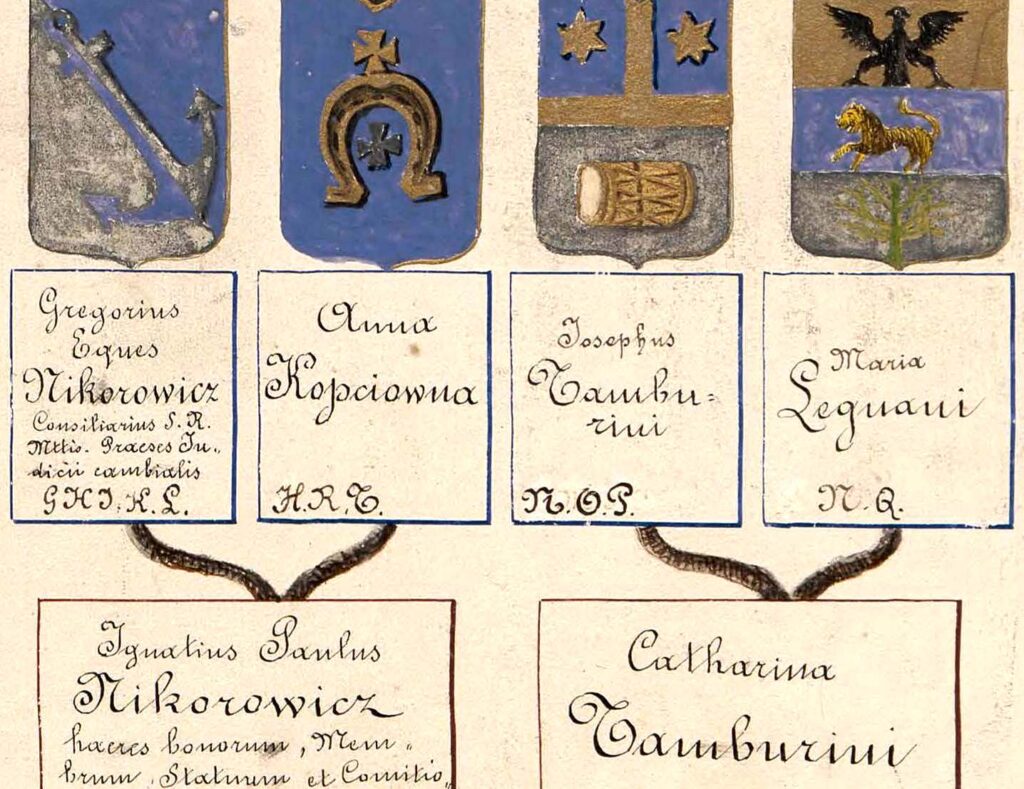 Gregorius
Eques
Nikorowicz
Consiliarius S. R.
Mttis. Praeses Ju„
dicii cambialis
G H I. K. L.
Anna
Kopciowna
H. R. T.
Josephus
Tambu=
rini
N. O. P.
Maria
Legnani
N. Q.
Ignatius Paulus
Nikorowicz
haeres bonorum, Mem„
brum, Statuum et Comitio„
Catharina
Tamburini